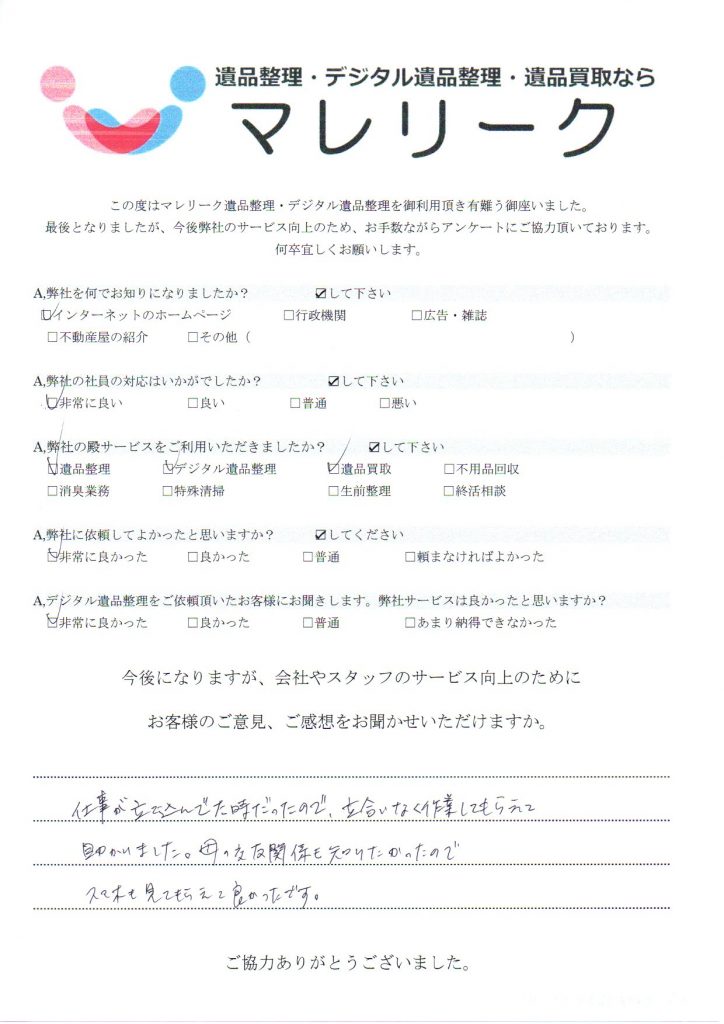 遺品整理・デジタル遺品整理・遺品買取なら
マレリーク
この度はマレリーク遺品整理・デジタル遺品整理を御利用頂き有難う御座いました。
最後となりましたが、今後弊社のサービス向上のため、お手数ながらアンケートにご協力頂いております。
何卒宜しくお願いします。
A,弊社を何でお知りになりましたか？ ☑して下さい
☑インターネットのホームページ □行政機関 □広告・雑誌
□不動産屋の紹介 □その他（ ）
A,弊社の社員の対応はいかがでしたか？ ☑して下さい
☑非常に良い □良い □普通 □悪い
A,弊社の殿サービスをご利用いただきましたか？ ☑して下さい
☑遺品整理 ☑デジタル遺品整理 ☑遺品買取 □不用品回収
□消臭業務 □特殊清掃 □生前整理 □終活相談
A,弊社に依頼してよかったと思いますか？ ☑してください
☑非常に良かった □良かった □普通 □頼まなければよかった
A,デジタル遺品整理をご依頼頂いたお客様にお聞きします。弊社サービスは良かったと思いますか？
☑非常に良かった □良かった □普通 □あまり納得できなかった
今後になりますが、会社やスタッフのサービス向上のために
お客様のご意見、ご感想をお聞かせいただけますか。
仕事が立て込んでた時だったので、立合いなく作業してもらえて
助かりました。母の交友関係も知りたかったので
スマホも見てもらえて良かったです。
ご協力ありがとうございました。